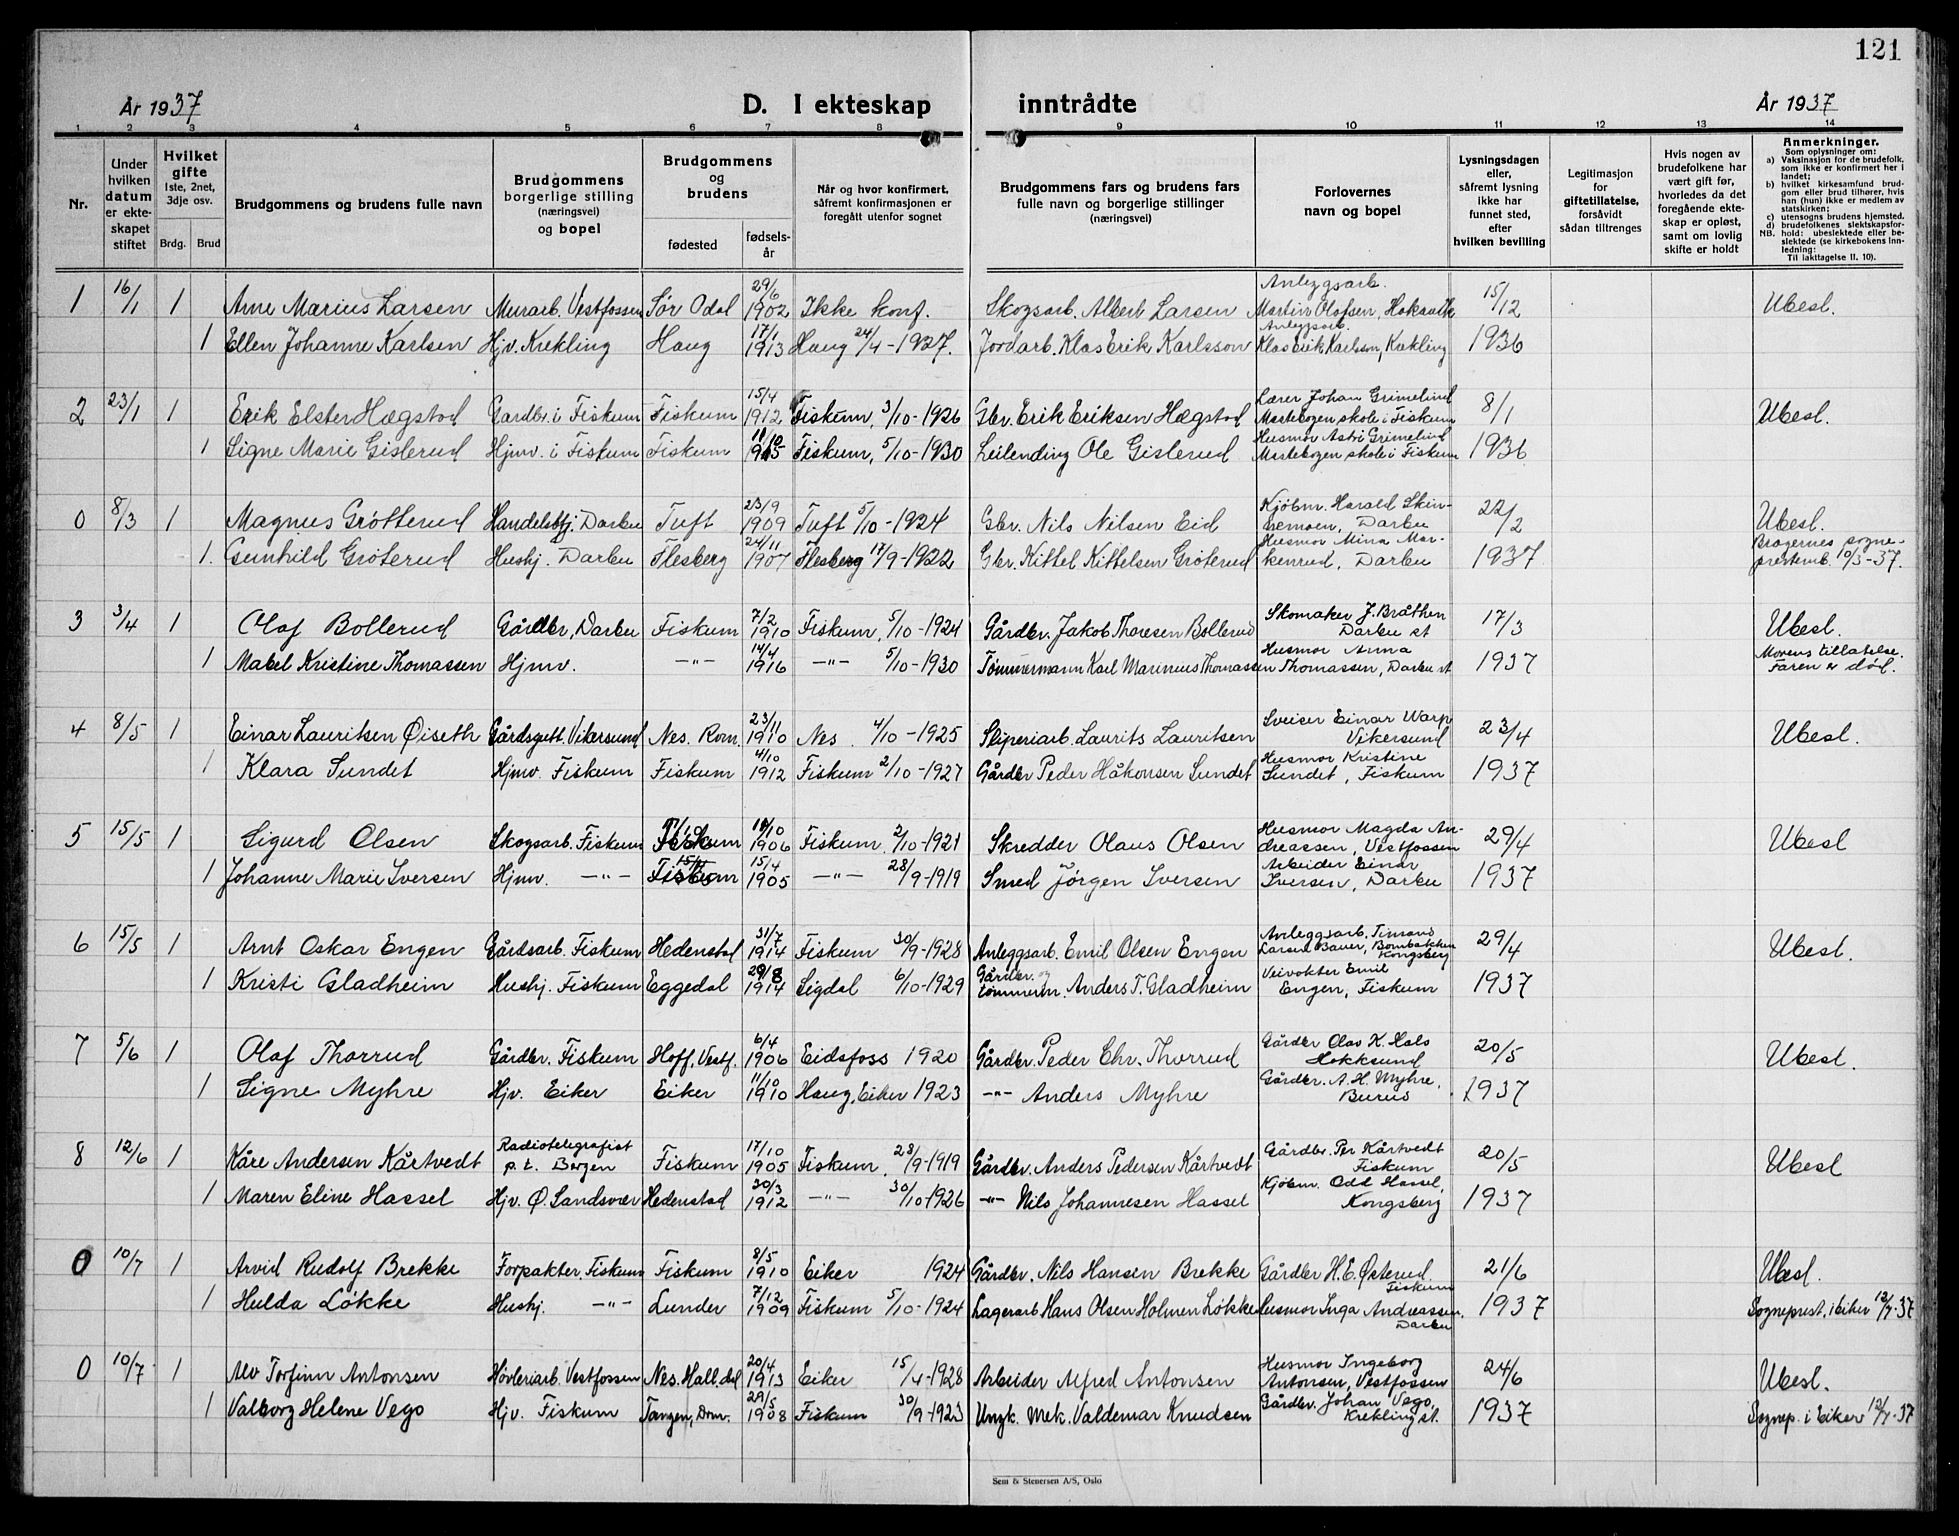 121
År 1937 D. I ekteskap inntrådte År 1937
1 2 3 4 5 6 7 8 9 10 11 12 13 14
Nr.
Under hvilken datum er ekte-skapet stiftet
Hvilket gifte 1ste, 2net, 3dje osv.
Brdg. Brud
Brudgommens og brudens fulle navn
Brudgommens borgerlige stilling (næringsvei) og bopel
Brudgommens og brudens
fødested fødsels-år
Når og hvor konfirmert, såfremt konfirmasjonen er foregått utenfor sognet
Brudgommens fars og brudens fars fulle navn og borgerlige stillinger (næringsvei)
Forlovernes navn og bopel
Lysningsdagen eller, såfremt lysning ikke har funnet sted, efter hvilken bevilling
Legitimasjon for giftetillatelse, forsåvidt sådan tiltrenges
Hvis nogen av brudefolkene har vært gift før, hvorledes da det foregående ekte-skap er opløst, samt om lovlig skifte er holdt
Anmerkninger.
Som oplysninger om:
a) Vaksinasjon for de brudefolk, som ikke er konfirmert her i landet;
b) hvilket kirkesamfund brud-gom eller brud tilhører, hvis han (hun) ikke er medlem av statskirken;
c) utensogns brudens hjemsted.
d) brudefolkenes slektskapsfor-hold: ubeslektede eller be-slektede (se kirkebokens inn-ledning:
NB. Til iakttagelse II. 10).
1 16/1 1 Arne Marius Larsen Murarb. Vestfossen Sør Odal 29/6 1902 Ikke konf. Skogsarb. Albert Larsen Anleggsarb. Martin Olafsen, 15/12 Ubesl.
1 Ellen Johanne Karlsen Hjv. Krekling Haug 17/1 1913 Haug 24/4-1927. Jordarb. Klas Erik Karlsson Anleggsarb. Klas Erik Karlsson, Krekling 1936
2 23/1 1 Erik Elster Hægstad Gardbr. i Fiskum Fiskum 15/4 1912 Fiskum, 3/10-1926 Gbr. Erik Eriksen Hægstad Lærer Johan Grimelund Martebogen skole i Fiskum 8/1 Ubesl.
1 Signe Marie Gislerud Hjmv. i Fiskum Fiskum 11/10 1915 Fiskum, 5/10-1930 Leilending Ole Gislerud Husmor Astri Grimelund Martebogen skole i Fiskum 1936
0 8/3 1 Magnus Grötterud Handelsbtj. Darbu Tuft 23/9 1909 Tuft 5/10-1924 Gbr. Nils Nilsen Eid Kjöbm. Harald Skin-semoen, Darbu 22/2 Ubesl.
1. Gunhild Gröterud Hushj. Darbu Flesberg 24/11 1907 Flesberg 17/9-1922 Gbr. Kittel Kittelsen Gröterud Husmor Mina Mar-kenrud, Darbu 1937 Bragernes sogne-prestemb. 10/3-37.
3 3/4 1 Olaf Bollerud Gårdbr, Darbu Fiskum 7/2 1910 Fiskum, 5/10-1924 Gårdbr. Jakob Thoresen Bollerud Skomaker J. Bråthen Darbu st 17/3 Ubesl.
1 Mabel Kristine Thomassen Hjmv. -"- 14/4 1916 -"- 5/10-1930 Tømmermann Karl Marinius Thomassen Husmor Anna Thomassen, Darbu st 1937 Morens tillatelse. Faren er död.
4 8/5 1 Einar Lauritsen Øiseth Gårdsgutt Vikersund Nes. Rom. 23/11 1910 Nes. 4/10-1925 Sliperiarb. Laurits Lauritsen Sveiser Einar Warp Vikersund 23/4 Ubesl.
1 Klara Sundet Hjmv. Fiskum Fiskum 4/10 1912 Fiskum 2/10-1927 Gårdbr Peder Håkonsen Sundet Husmor Kristine Sundet, Fiskum 1937
5 15/5 1 Sigurd Olsen Skogsarb. Fiskum Fiskum 11/10 1906 Fiskum 2/10-1921 Skredder Olaus Olsen Husmor Magda An-dreassen, Vestfossen 29/4 Ubesl
1 Johanne Marie Iversen Hjmv. -"- Fiskum 15/4 1905 -"- 28/9-1919 Smed Jörgen Iversen Arbeider Einar Iversen, Darbu 1937
6 15/5 1 Arnt Oskar Engen Gårdsarb. Fiskum Hedenstad 31/7 1914 Fiskum 30/9-1928 Anleggsarb. Emil Olsen Engen Anleggsarb. Larsen Bauer, Kongsberg 29/4 Ubesl.
1 Kristi Gladheim Hushj. Fiskum Eggedal 29/8 1914 Sigdal 6/10-1929 Gårdbr. og tömmerm. Anders T. Gladheim Veivokter Emil Engen, Fiskum 1937
7 5/6 1 Olaf Thorrud Gårdbr. Fiskum Hoff, Vestf. 6/4 1906 Eidsfoss 1920 Gårdbr. Peder Chr. Thorrud Gårdbr Olas K. Hals Hokksund 20/5 Ubesl.
1 Signe Myhre Hjv. Eiker Eiker 11/10 1910 Haug, Eiker 1923 -"- Anders Myhre Gårdbr. A. H. Myhre, Burud 1937
8 12/6 1 Kåre Andersen Kårtvedt Radiotelegrafist p. t. Bergen Fiskum 17/10 1905 Fiskum 28/9-1919 Gårdbr. Anders Pedersen Kårtvedt Gårdbr. Per Kårtvedt Fiskum 20/5 Ubesl
1 Maren Eline Hassel Hjv. Ø. Sandsvær Hedenstad 30/3 1912 -"- 30/10-1926 -"- Nils Johannesen Hassel Kjöbm. Odd Hassel, Kongsberg 1937
0 10/7 1 Arvid Rudolf Brekke Forpakter, Fiskum Fiskum 8/5 1910 Eiker 1924 Gårdbr. Nils Hansen Brekke Gårdbr H. E. Østerud Fiskum 21/6 Ubesl.
1 Hulda Løkke Hushj. -"- Lunder 7/12 1909 Fiskum 5/10-1924 Lagerarb Hans Olsen Holmen Løkke Husmor Inga Andreassen. Darbu 1937 Sogneprest. i Eiker 12/7-37
0 10/7 1 Alv Torfinn Antonsen Høvleriarb. Vestfossen Nes. Hall.dal 20/4 1913 Eiker 15/4-1928 Arbeider Alfred Antonsen Husmor Ingeborg Antonsen, Vestfossen 24/6 Ubesl.
1 Valborg Helene Vego Hjv. Fiskum Tangen, Drm. 29/5 1908 Fiskum 30/9-1923 Ungk. Mek. Valdemar Knudsen Gårdbr. Johan Vego, Krekling st. 1937 Sognep. i Eiker 12/7-37
Sem & Stenersen A/S, Oslo